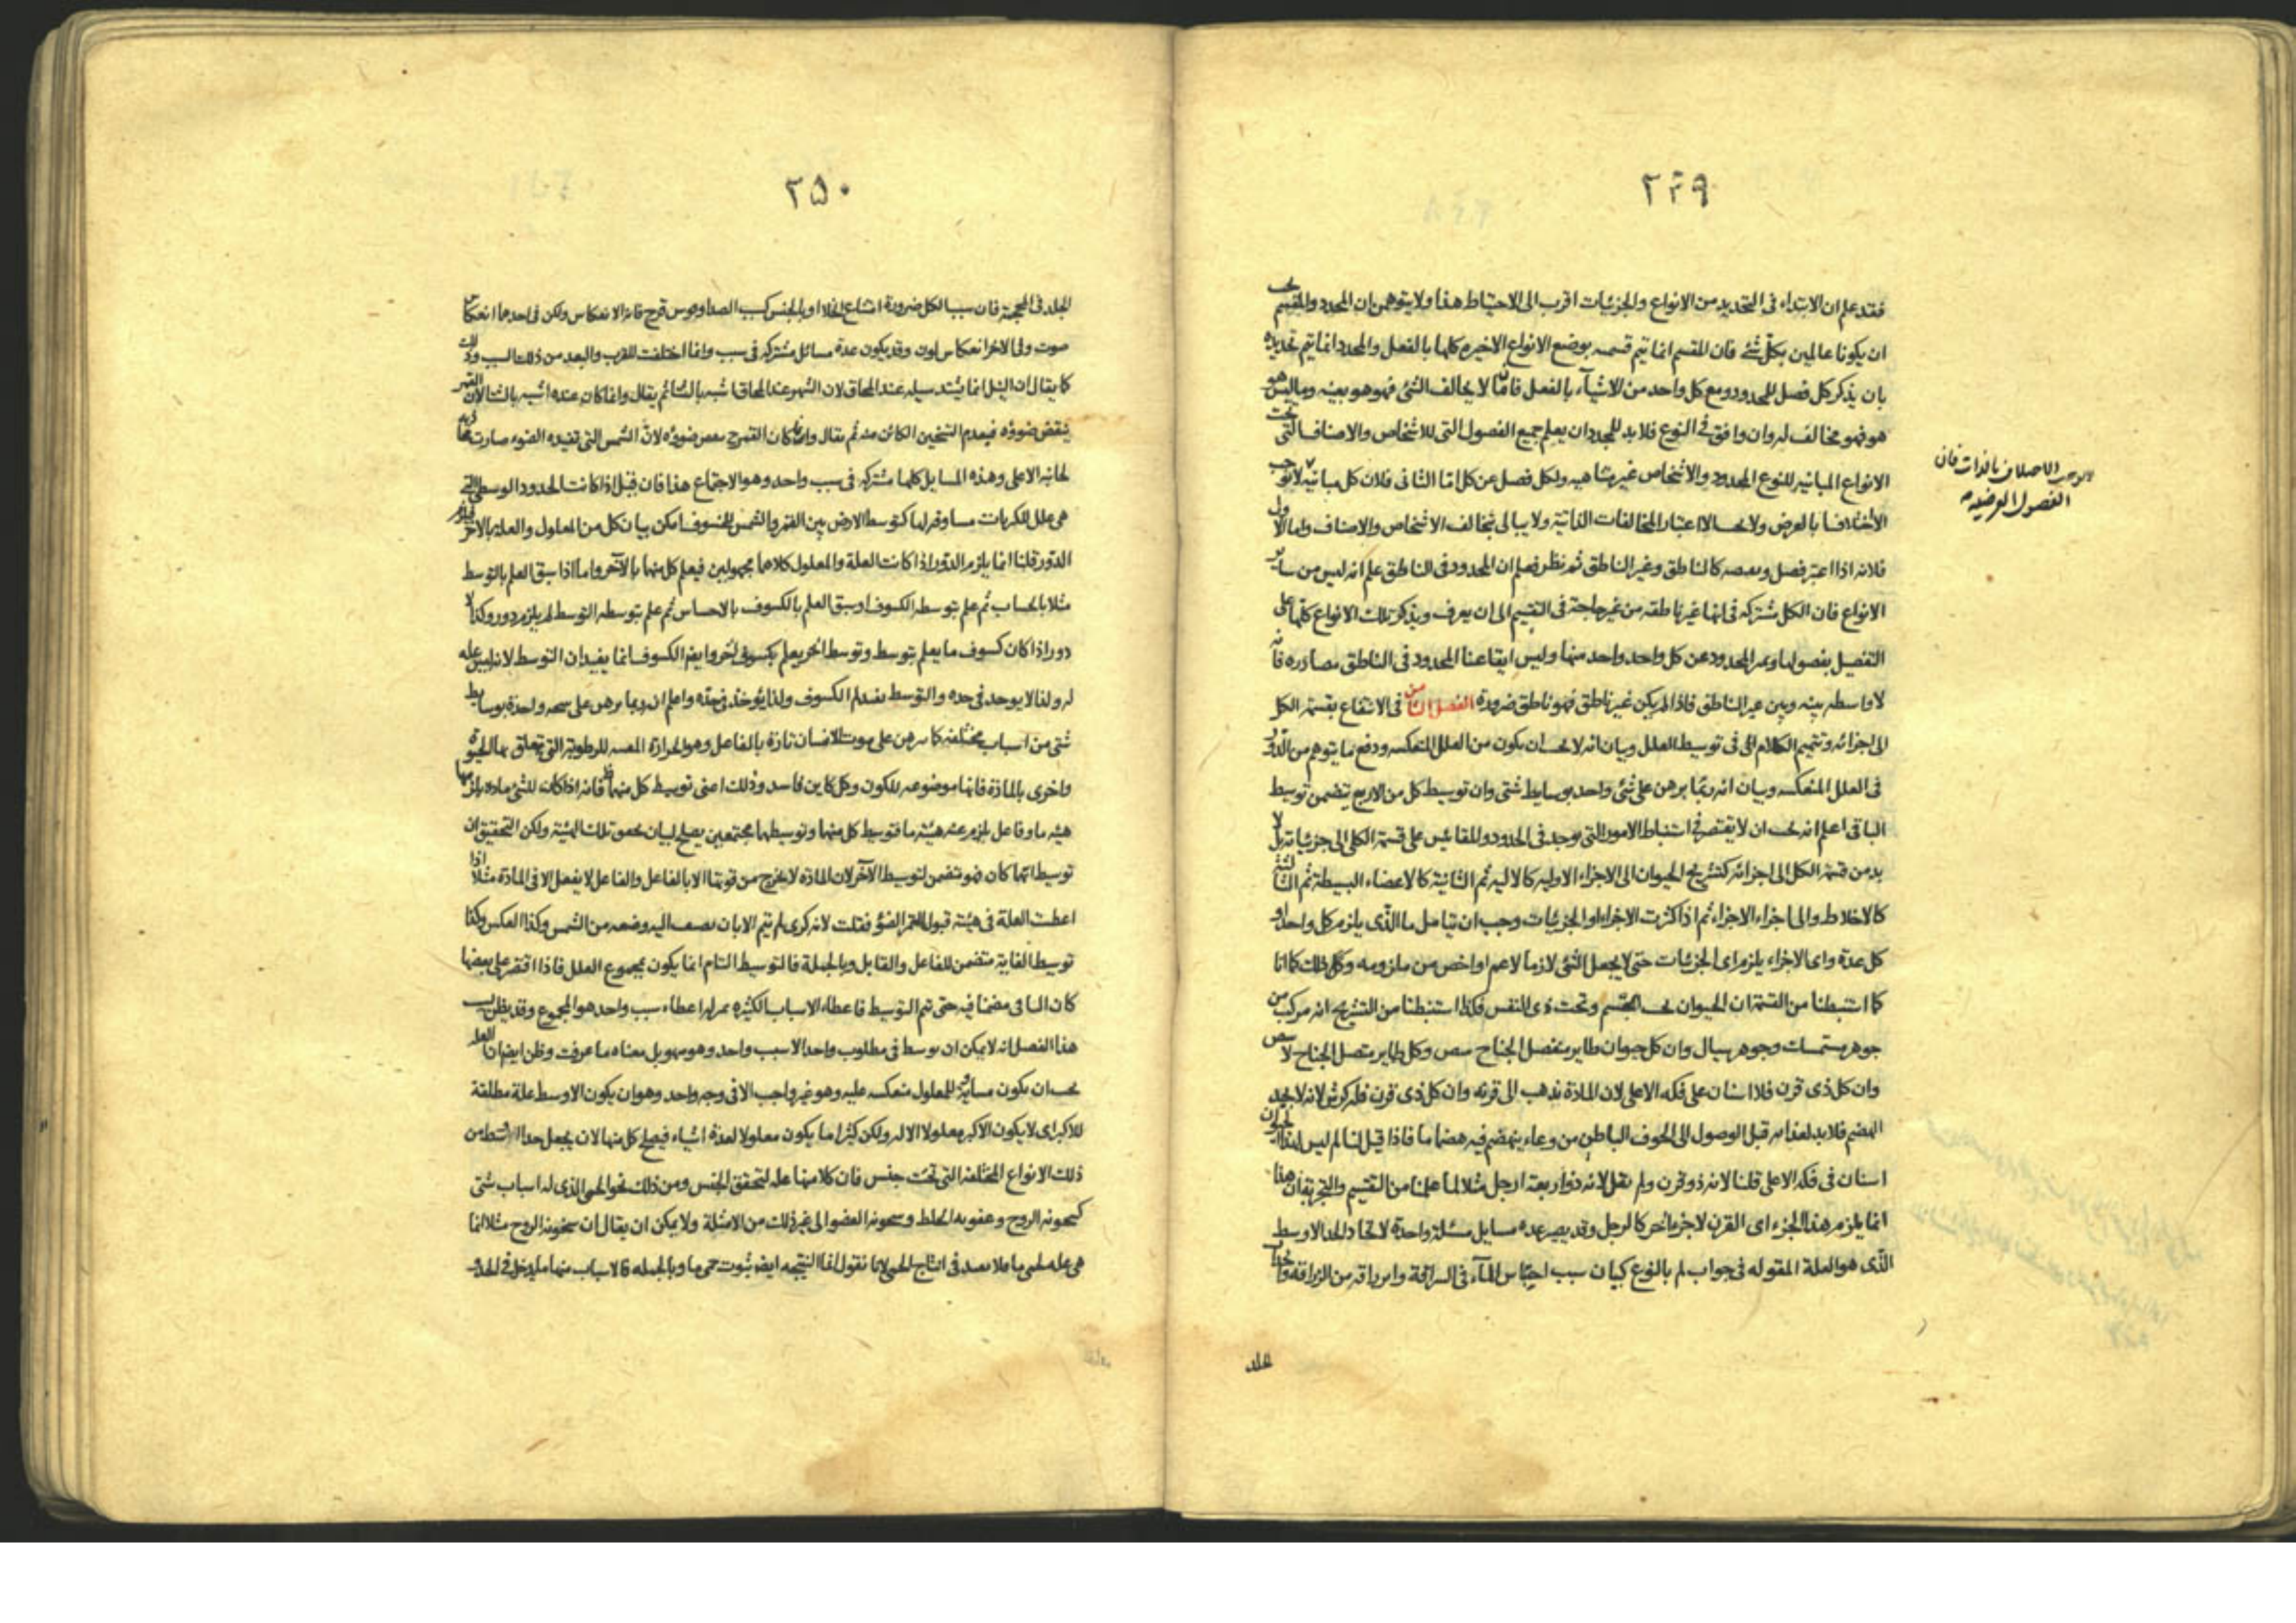 ٢٤٩
فقد علم ان الابتداء فى التحديد من الانواع والجزئيات اقرب الى الاحتياط هذا ولا يتوهمن ان المحدد والمقسم يجب
ان يكونا عالمين بكل شئ فان المقسم انما تتم قسمته بوضع الانواع الاخيره كلها بالفعل والمحدد انما يتم تحديده
بان يذكر كل فصل للمحدود ومع كل واحد من الاشيآء بالفعل فان ما لا يخالف الشئ فهو هو بعينه وما ليس هو
هو فهو مخالف له وان وافق فى النوع فلا بد للمحدد ان يعلم جميع الفصول التى للاشخاص والاصناف التى تحت
الانواع المباينه للنوع المحدود والاشخاص غير متناهيه ولكل فصل عن كل اما الثانى فلان كل مباينه لا توجب
الاختلاف بالذات فان
الفصول العرضيه
الاختلافا بالعرض ولا اعتبار المخالفات الذاتية ولا يبالى بتخالف الاشخاص والاصناف واما الاول
فلانه اذا اعتبر فصل ونقيضه كالناطق وغير الناطق ثم نظر فعلم ان المحدود فى الناطق علم انه ليس من ساير
الانواع فان الكل مشتركه فى انها غير ناطقه من غير حاجة فى التقسيم الى ان يعرف ويذكر تلك الانواع كلها على
التفصيل بفصولها ويميز المحدود عن كل واحد واحد منها وليس ايقاعنا المحدود فى الناطق مصادره فانه
لا واسطه بينه وبين غير الناطق فاذا لم يكن غير ناطق فهو ناطق ضرورة الفصل الثامن فى الانتفاع بقسمة الكل
الى اجزائه وتتميم الكلام الى فى توسيط العلل وبيان انه لا يجب ان يكون من العلل المنعكسه ودفع ما يتوهم من الدور
فى العلل المنعكسه وبيان انه ربما برهن على شئ واحد بوسايط شتى وان توسيط كل من الاربع يتضمن توسيط
الباقى اعلم انه يجب ان لا يقتصر فى استنباط الامور التى توجد فى الحدود والمقائيس على قسمة الكلى الى جزئياته بل لا
بد من قسمة الكل الى اجزائه كتشريح الحيوان الى الاجزاء الاوليه كالاليه ثم الثانية كالاعضاء البسيطة ثم الثالثة
كالاخلاط والى اجزاء الاجزاء ثم اذا كثرت الاجزاء او الجزئيات وجب ان يتامل ما الذى يلزم كل واحد او
كل عدة واى الاجزاء يلزم اى الجزئيات حتى لا يجعل الشئ لازما لاعم او اخص من ملزومه وكل ذلك كما انا
كما استنبطنا من القسمة ان الحيوان تحت الجسم وتحت ذى النفس فكذا استنبطنا من التشريح انه مركب من
جوهر مستمسك وجوهر سيال وان كل حيوان طاير منفصل الجناح يبيض وكل طاير متصل الجناح لا يبيض
وان كل ذى قرن فلا اسنان على فكه الاعلى لان المادة تذهب الى قرنه وان كل ذى قرن فله كرش لانه لا يجيد
الهضم فلا بد لغذائه قبل الوصول الى الجوف الباطن من وعاء ينهضم فيه هضما ما فاذا قيل لنا لم ليس لهذا الحيوان
اسنان فى فكه الاعلى قلنا لانه ذو قرن ولم نقل لانه ذو اربعة ارجل مثلا لما علمنا من التقسيم والتجربة ان هذا
انما يلزم هذا الجزء اى القرن لا جزءا اخر كالرجل وقد يصير عدة مسايل مسئلة واحدة لاتحاد الحد الاوسط
الذى هو العلة المقوله فى جواب لم بالنوع كبيان سبب احتباس المآء فى السراقة من الزراقة
الجلد
٢٥٠
الجلد فى المحجمة فان سبب الكل ضرورة امتناع الخلا او بالجنس كسبب الصدا وقوس قزح فانه الانعكاس ولكن فى احدهما انعكاس
صوت وفى الاخر انعكاس لون وقد يكون عدة مسائل مشتركه فى سبب وانما اختلفت للقرب والبعد من ذلك السبب وذلك
كما يقال ان النيل انما يشتد سيله عند المحاق لان الشهر عند المحاق اشبه بالشتا ثم يقال وانما كان عنده اشبه بالشتا لان القمر
ينقص ضوؤه فيعدم التسخين الكائن منه ثم يقال وانما كان القمر ينقص ضوؤه لان الشمس التى تفيده الضوء صارت
لجانبه الاعلى وهذه المسايل كلها مشتركه فى سبب واحد وهو الاجتماع هذا فان قيل اذا كانت الحدود الوسطى التى
هى علل للكبريات مساوقه لها كتوسط الارض بين القمر والشمس للخسوف امكن بيان كل من المعلول والعلة بالاخر
الدور قلنا انما يلزم الدور اذا كانت العلة والمعلول كلاهما مجهولين فيعلم كل منهما بالآخر واما اذا سبق العلم بالتوسط
مثلا بالحساب ثم علم بتوسطه الكسوف او سبق العلم بالكسوف بالاحساس ثم علم بتوسطه التوسط لم يلزم دور وكذا لا
دور اذا كان كسوف ما يعلم بتوسط وتوسط اخر يعلم بكسوف اخر وايضا الكسوف انما يفيد ان التوسط لا انه ليس عله
له ولذا لا يوجد فى حده والتوسط يفيد لم الكسوف ولذا يؤخذ فى حده واعلم انه ربما برهن على نتيجه واحدة بوسايط
شتى من اسباب مختلفه كما يبرهن على موت الانسان تارة بالفاعل وهو الحرارة المفنيه للرطوبة التى تتعلق بها الحيوة
واخرى بالمادة فانها موضوعه للكون وكل كاين فاسد وذلك اعنى توسيط كل منها فانه اذا كانت للشئ ماده يلزمها
هيئه ما وفاعل يلزم عنه هيئة ما فتوسيط كل منهما وتوسيطهما مجتمعين يصلح لبيان تحقق تلك الهيئة ولكن التحقيق ان
توسيط ايهما كان فهو متضمن لتوسيط الآخر لان المادة لا يخرج من قوتها الا بالفاعل والفاعل لا يفعل الا فى المادة مثلا اذا
اعطت العلة فى هيئة قبول القمر الضوء فقلت لانه كرى لم تتم الا بان تضيف اليه وضعه من الشمس وكذا العكس وكذا
توسيط الغاية متضمن للفاعل والقابل وبالجملة فالتوسيط التام انما يكون بمجموع العلل فاذا اقتصر على بعضها
كان الباقى مضمنا فيه حتى تتم التوسيط فاعطاء الاسباب الكثيره بمنزلة اعطاء سبب واحد هو المجموع وقد يظن بسبب
هذا الفصل انه لا يمكن ان يوسط فى مطلوب واحد الا سبب واحد وهو سهو بل معناه ما عرفت وظن ايضا ان العلة
يجب ان يكون مساوية للمعلول منعكسه عليه وهو غير واجب الا فى وجه واحد وهو ان يكون الاوسط علة مطلقة
للاكبر اى لا يكون الاكبر معلولا الا له ولكن كثيرا ما يكون معلولا لعدة اشياء فيصلح كل منها لان يجعل حدا اوسط من
ذلك الانواع المختلفه التى تحت جنس فان كلا منها عله لتحقق الجنس ومن ذلك نحو الحمى الذى له اسباب شتى
كسخونة الروح وعفونة الخلط وسخونة العضو الى غير ذلك من الامثلة ولا يمكن ان يقال ان سخونة الروح مثلا انما
هى عله لحمى ما فلا يصدق فى انتاج الحمى لانا نقول انما النتيجه ايضا ثبوت حمى ما وبالجمله فالاسباب منها ما يدخل فى الحدود